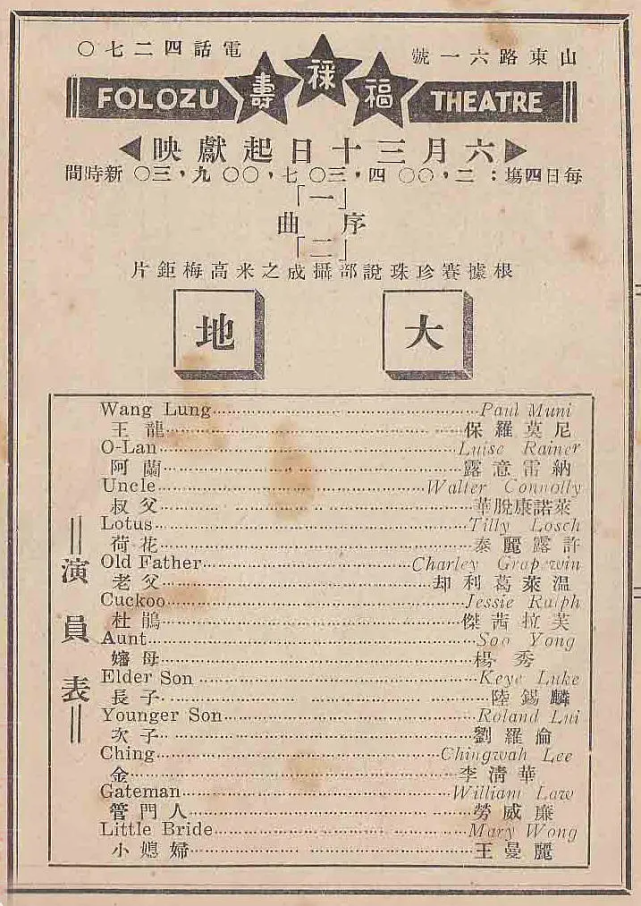 山東路六一號 電話四二七〇
FOLOZU 福祿壽 THEATRE
六月三十日起獻映
每日四塲：二，〇〇 四，三〇 七，〇〇 九，三〇 新時間
「一」
序曲
「二」
根據賽珍珠說部攝成之米高梅鉅片
大地
演員表
Wang Lung Paul Muni
王龍 保羅莫尼
O-Lan Luise Rainer
阿蘭 露意雷納
Uncle Walter Connolly
叔父 華脫康諾萊
Lotus Tilly Losch
荷花 泰麗露許
Old Father Charley Grapewin
老父 却利葛萊温
Cuckoo Jessie Ralph
杜鵑 傑茜拉芙
Aunt Soo Yong
嬸母 楊秀
Elder Son Keye Luke
長子 陸錫麟
Younger Son Roland Lui
次子 劉羅倫
Ching Chingwah Lee
金 李清華
Gateman William Law
管門人 勞威廉
Little Bride Mary Wong
小媳婦 王曼麗